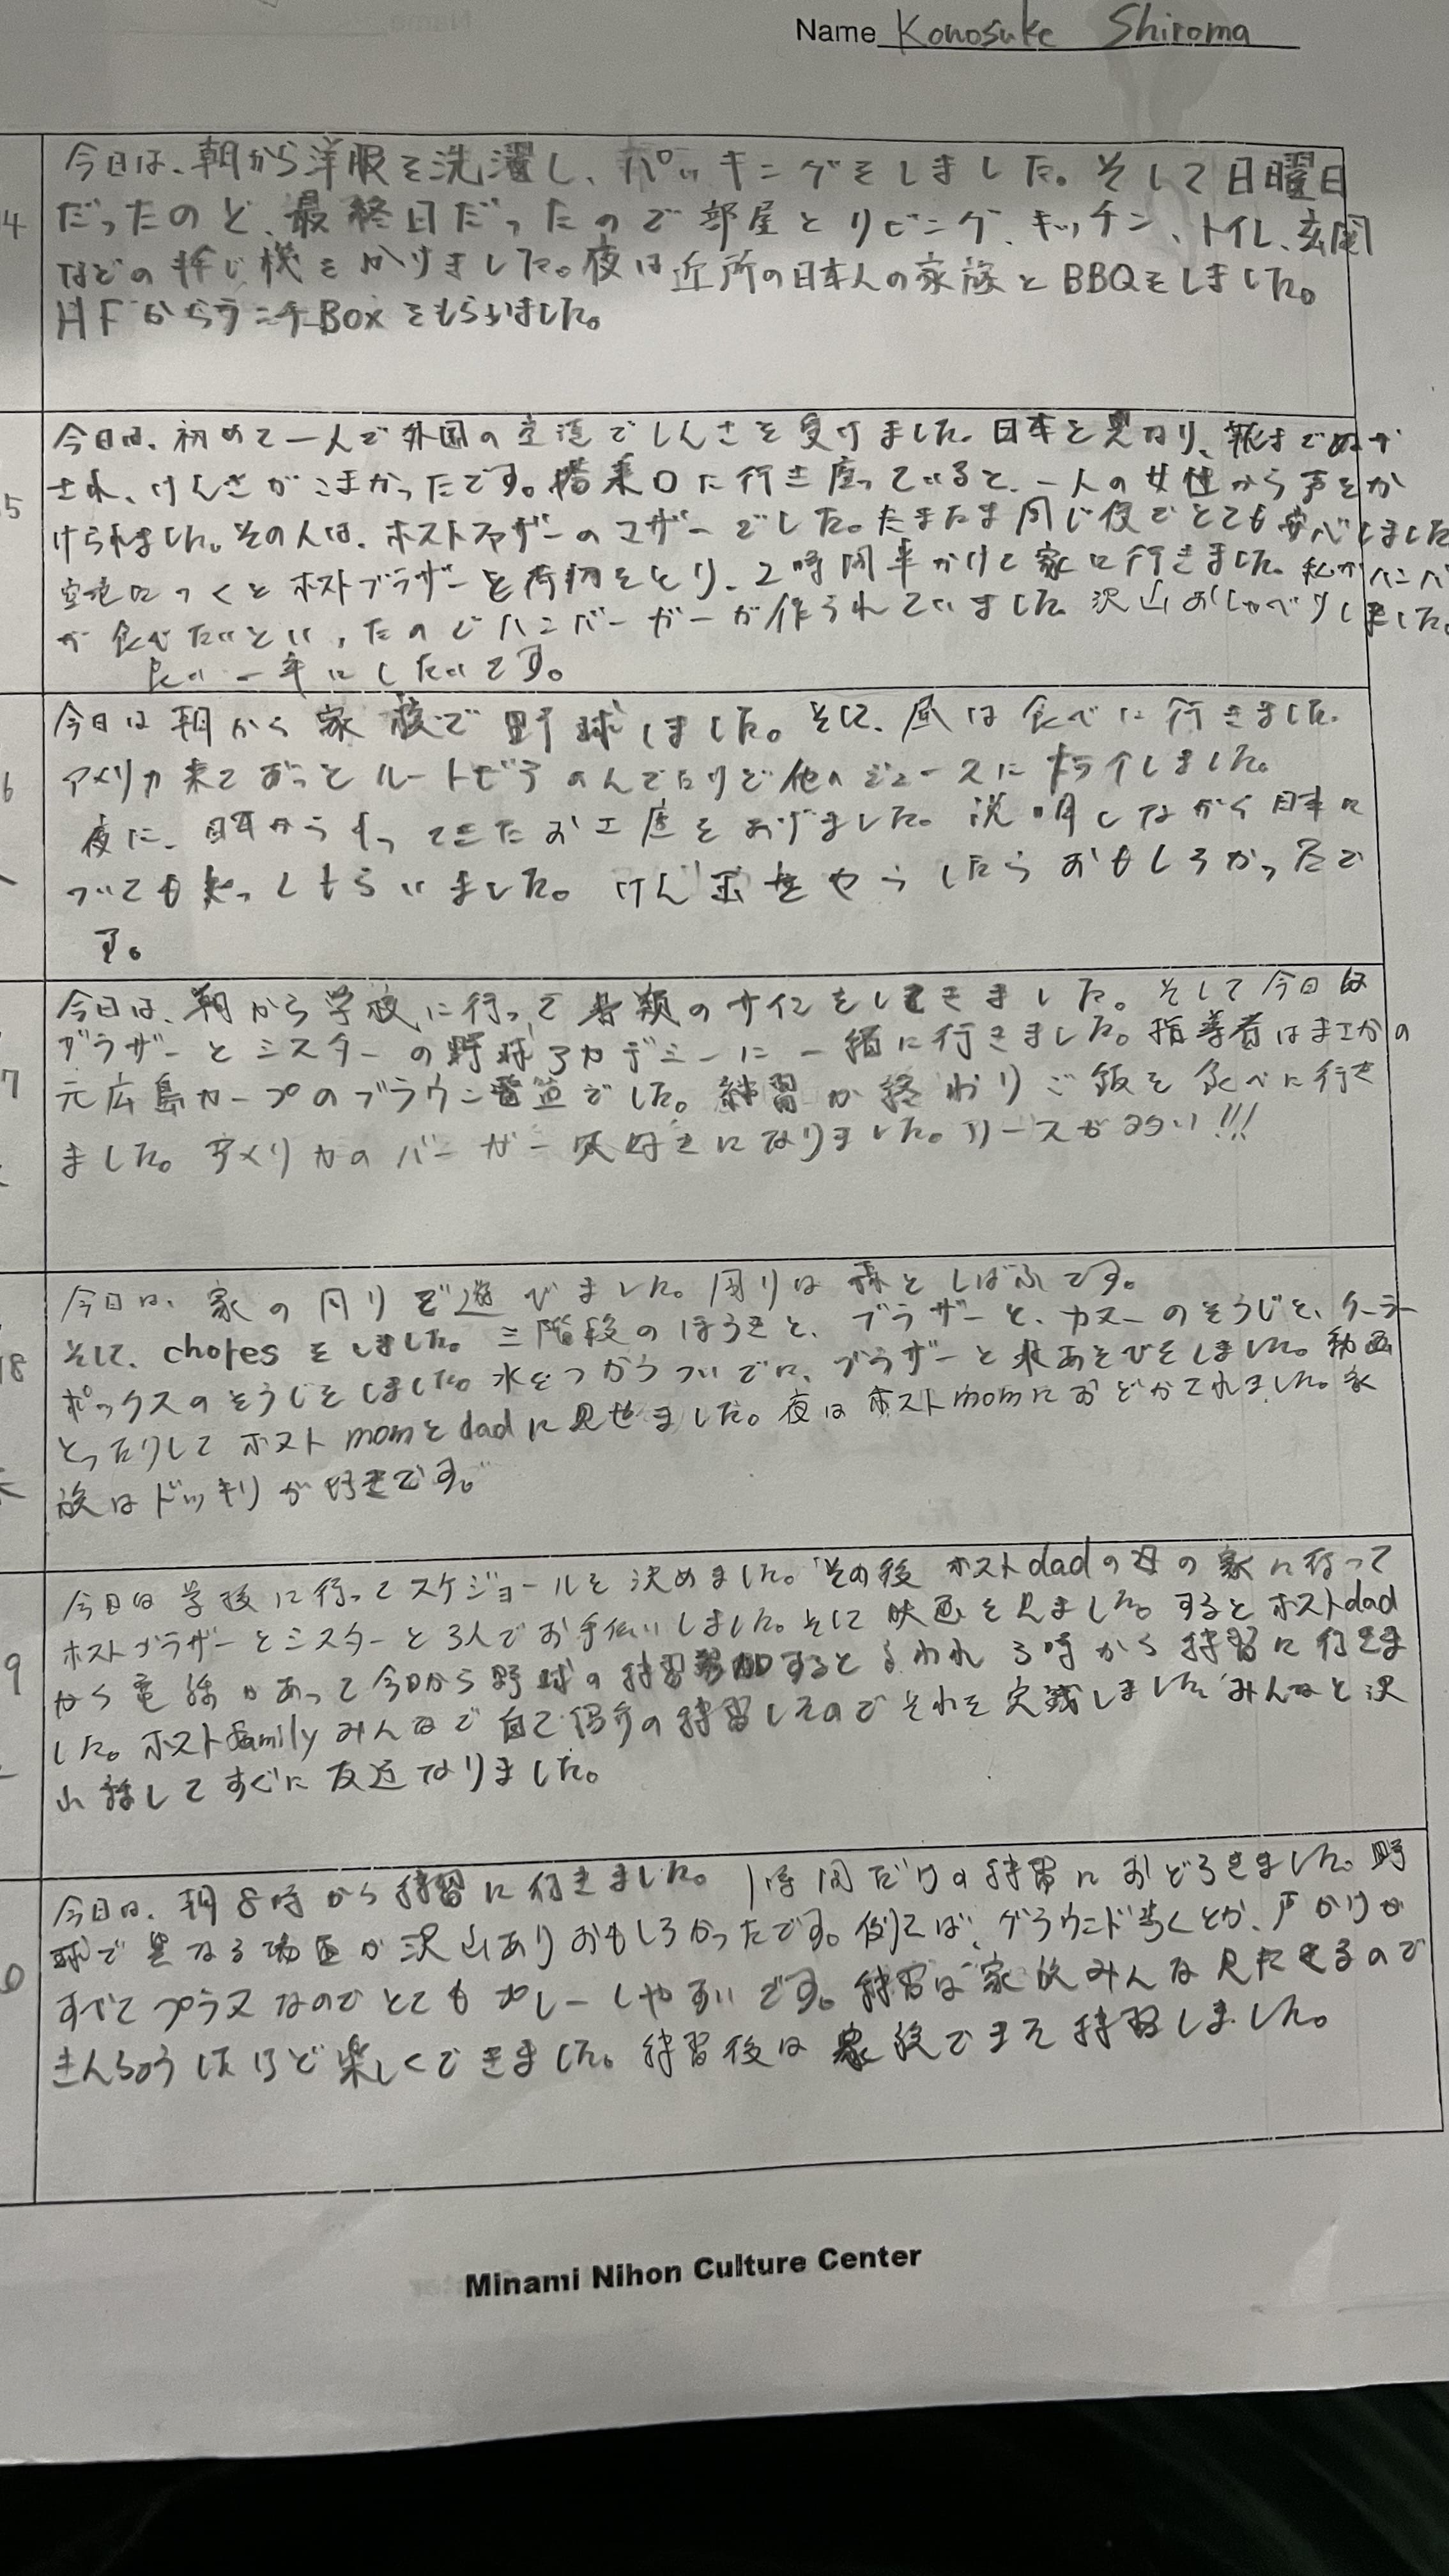 Name Konosuke Shiroma
4
今日は、朝から洋服を洗濯し、パッキングをしました。そして日曜日
だったのと、最終日だったので部屋とリビング、キッチン、トイレ、玄関
などの掃じ機をかけました。夜は近所の日本人の家族とBBQをしました。
HFからランチBoxをもらいました。
5
今日は、初めて一人で外国の空港でしんさを受けました。日本と異なり、靴までぬが
され、けんさがこまかったです。搭乗口に行き座っていると、一人の女性から声をか
けられました。その人は、ホストファザーのマザーでした。たまたま同じ便でとても しました
空港につくとホストブラザーと荷物をとり、2時間半かけて家に行きました。私がハンバ
が食べたいといったのでハンバーガーが作られていました。沢山おしゃべりしました。
良い一年にしたいです。
6
今日は朝から家族で野球しました。そして、昼は食べに行きました。
アメリカ来てずっとルートビアのんでたりで他のジュースにトライしました。
夜に、日本からもってきたお土産をあげました。説明しながら日本に
ついても知ってもらいました。けん玉をやらしたらおもしろかったで
す。
7
今日は、朝から学校に行って書類のサインをしてきました。そして今日は
ブラザーとシスターの野球アカデミーに一緒に行きました。指導者はまさかの
元広島カープのブラウン監督でした。練習が終わりご飯を食べに行き
ました。アメリカのバーガー大好きになりました。ソースがうまい!!!
18
今日は、家の周りで遊びました。周りは森としばふです。
そして、choresをしました。三階段のほうきと、ブラザーと、カヌーのそうじと、クーラー
ボックスのそうじをしました。水をつかうついでに、ブラザーと水あそびをしました。動画
とったりしてホストmomとdadに見せました。夜はホストmomにおどかされました。家
族はドッキリが好きです。
9
今日は学校に行ってスケジョールを決めました。その後ホストdadの母の家に行って
ホストブラザーとシスターと3人でお手伝いしました。そして映画を見ました。するとホストdad
から電話があって今日から野球の練習参加するといわれ3時から練習に行きま
した。ホストfamilyみんなで の練習してたのでそれを実践しました。みんなと沢
山話してすぐに友達なりました。
0
今日は、朝8時から練習に行きました。1時間だけの練習におどろきました。野
球で異なる場面が沢山ありおもしろかったです。例えば、グラウンド歩くとか、声かけが
すべてプラスなのでとてもプレーしやすいです。練習は家族みんな見にきてるので
きんちょうしたけど楽しくできました。練習後は家族でまた練習しました。
Minami Nihon Culture Center